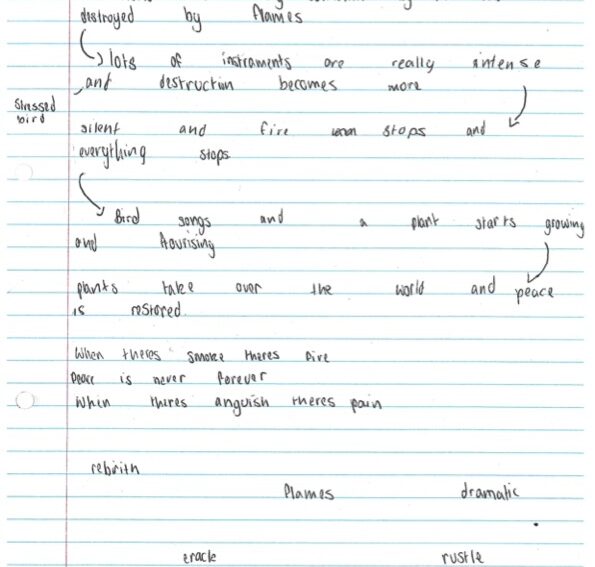 distroyed by flames
lots of instraments are really intense
and destruction becomes more
stressed
bird
silent and fire stops and
everything stops
Bird songs and a plant starts growing
and flourising
plants take over the world and peace
is restored.
When theres smoke theres fire
Peace is never forever
When theres anguish theres pain
rebirith
flames dramatic
crackle rustle